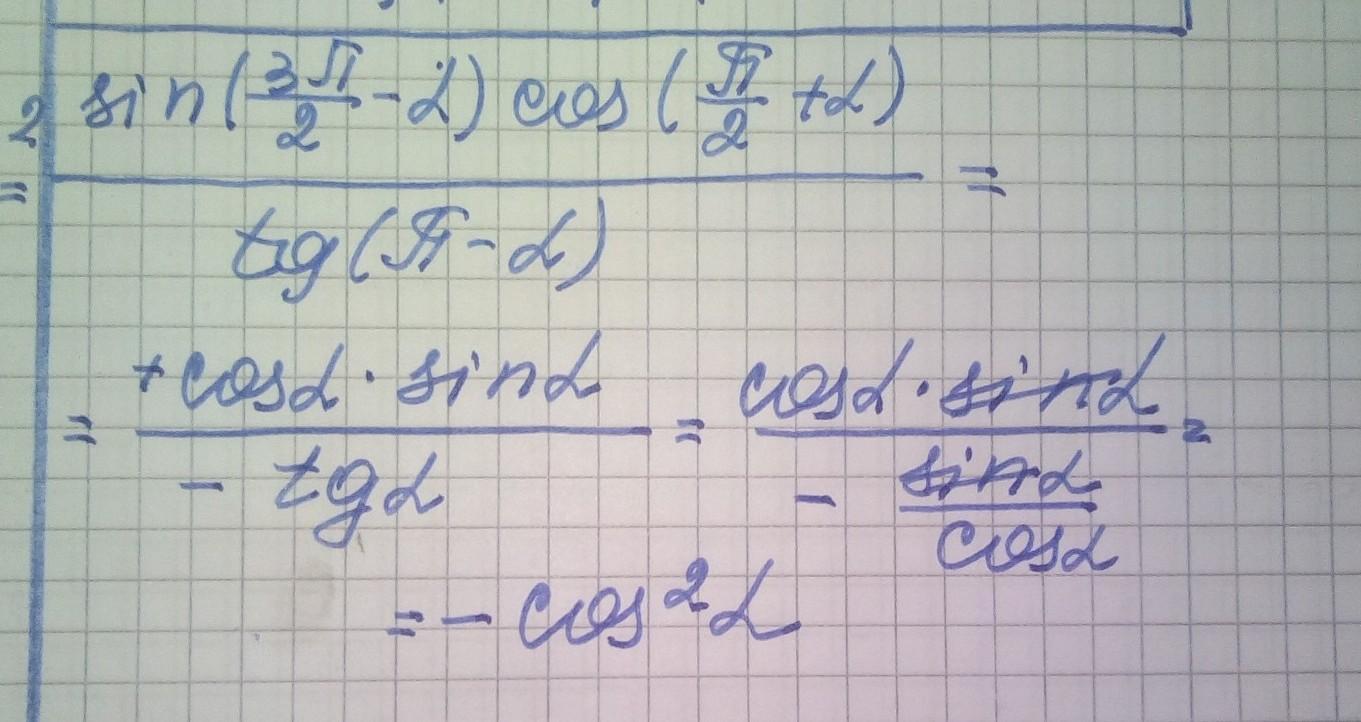 sin(3π/2 - α) cos(π/2 + α)
=
tg(π - α)
=
= +cosα · sinα / - tgα = cosα · sinα / - sinα/cosα =
= - cos²α